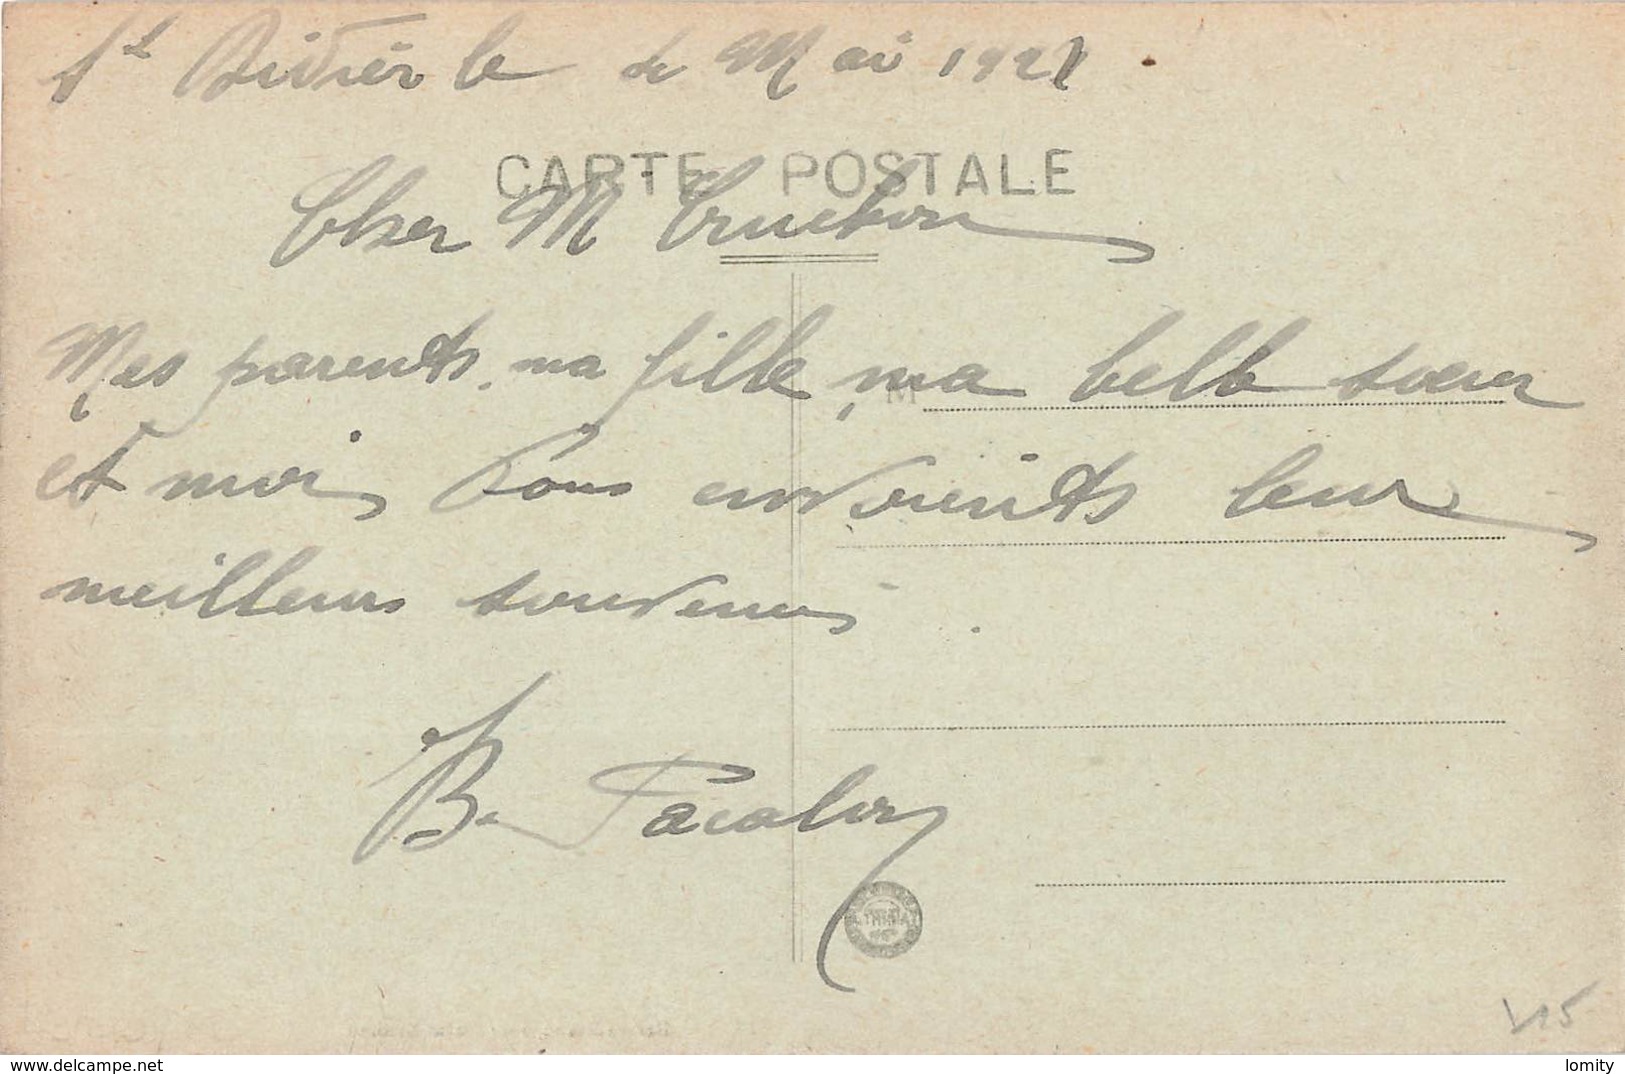 St Didier le de Mai 1921
CARTE POSTALE
Cher M Truchon
Mes parents, ma fille, ma belle soeur
M
et moi vous envoients leur
meilleurs souvenirs
B. Pacalon
V15
www.delcampe.net
lomity